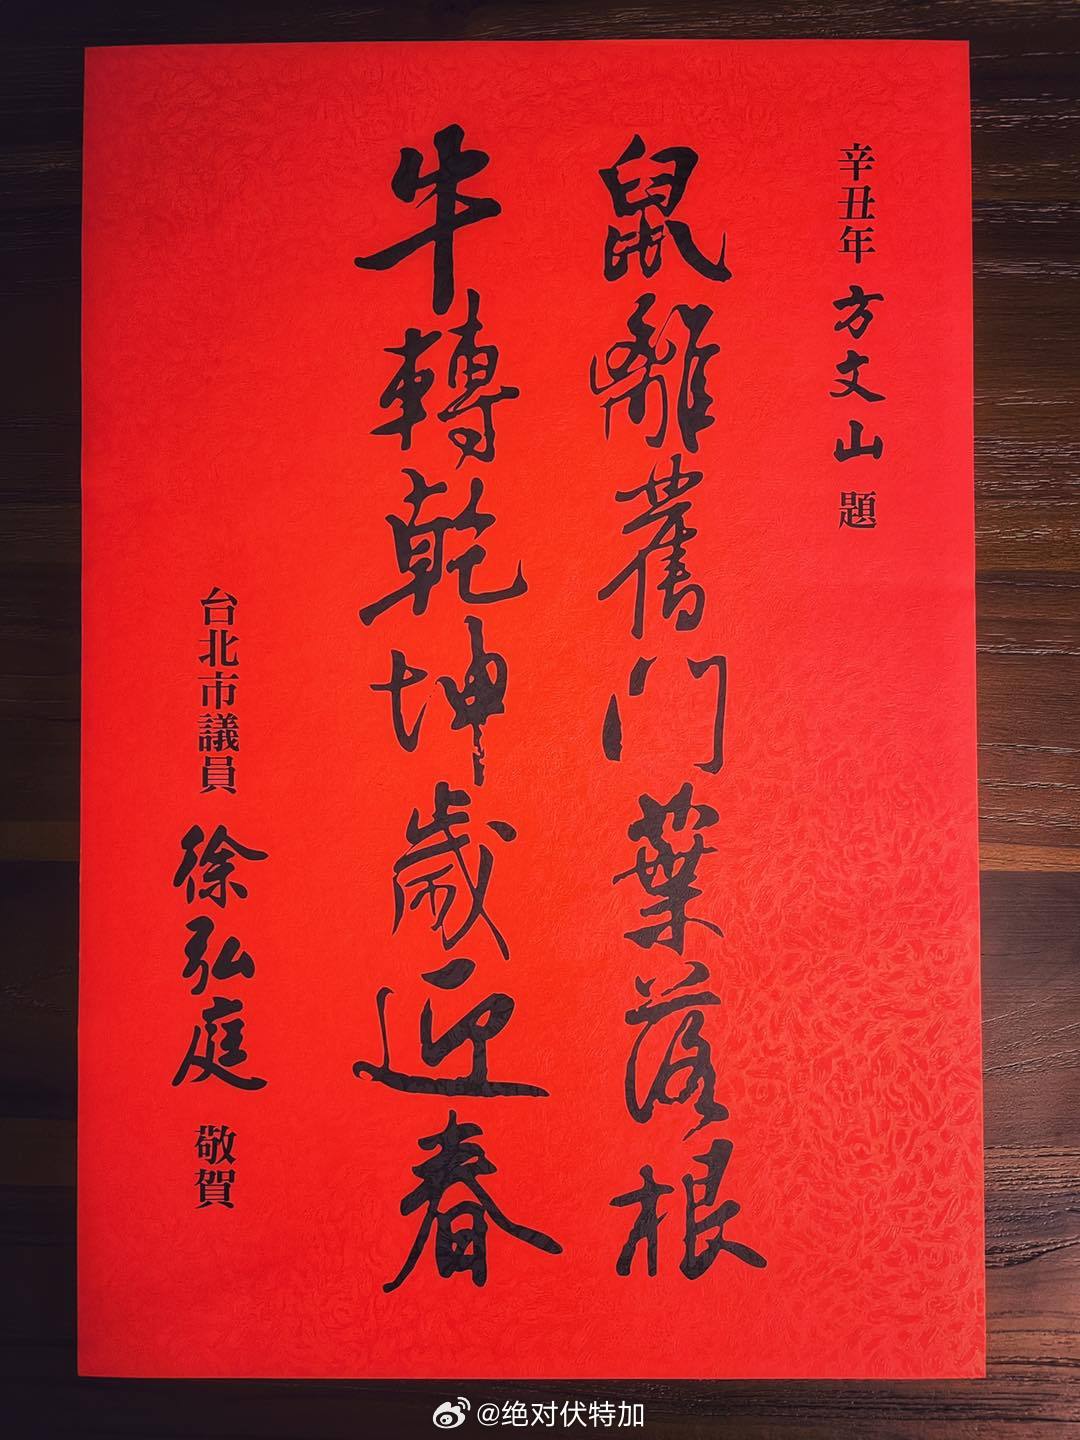 辛丑年 方文山 題
鼠離舊門葉落根
牛轉乾坤歲迎春
台北市議員 徐弘庭 敬賀
@绝对伏特加